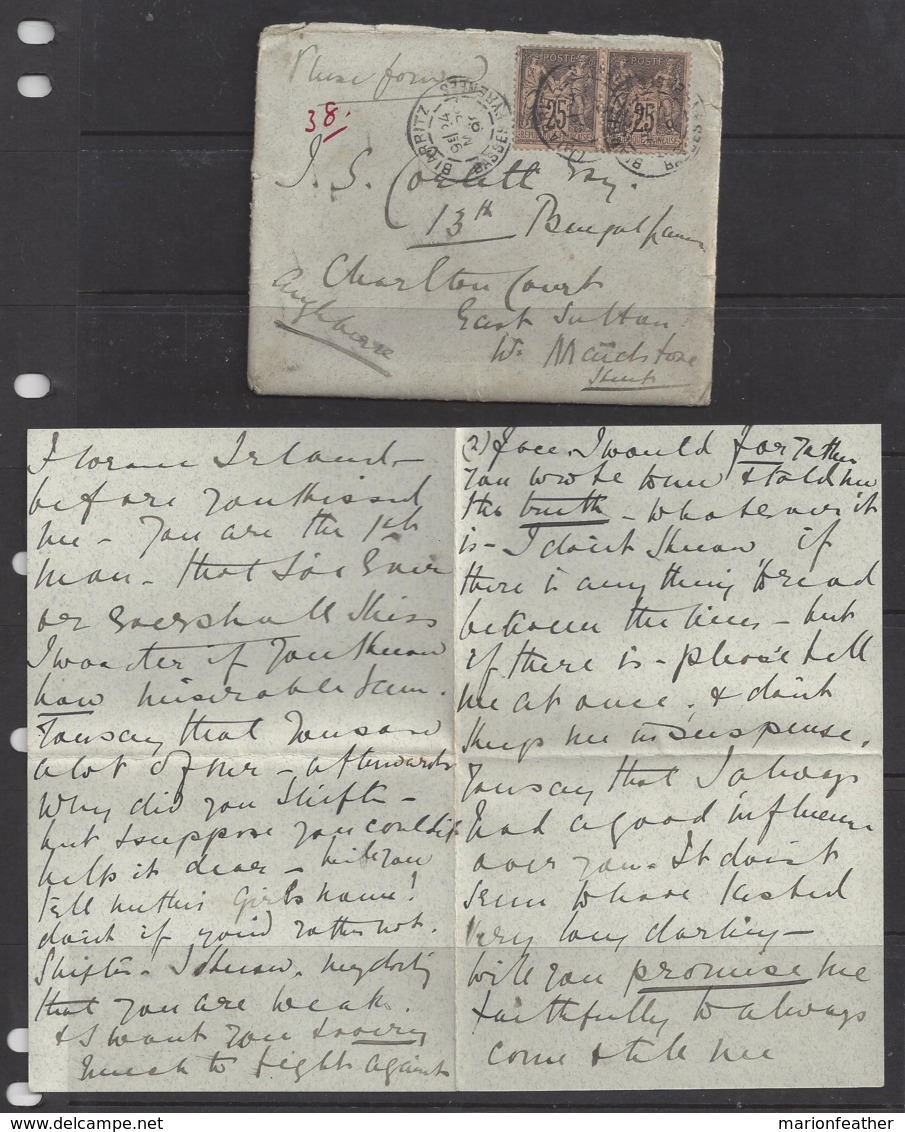 Please forward
38.
POSTE POSTE
25 25
BIARRITZ
BASSES PYRENEES
J. S. Corlett Esq.
13th Bengal
Charlton Court
East Sutton
Nr. Maidstone
Kent
Angleterre
before you kissed
me - You are the 1st
man - that I've ever
or ever shall kiss
I wonder if you know
how miserable I am.
You say that you saw
a lot of her - afterwards
Why did you
but I suppose you couldn't
help it dear - will you
tell me this Girls name!
don't if you'd rather not.
I know, my
that you are weak.
& I want you to very
much to fight against
(2) face. I would far rather
you wrote to me & told me
the truth - whatever it
is - I don't know if
there is anything to read
between the lines - but
if there is - please tell
me at once, & don't
keep me in suspense.
You say that I always
had a good influence
over you. It don't
seem to have lasted
very long darling -
Will you promise me
faithfully to always
come & tell me
marionfeather